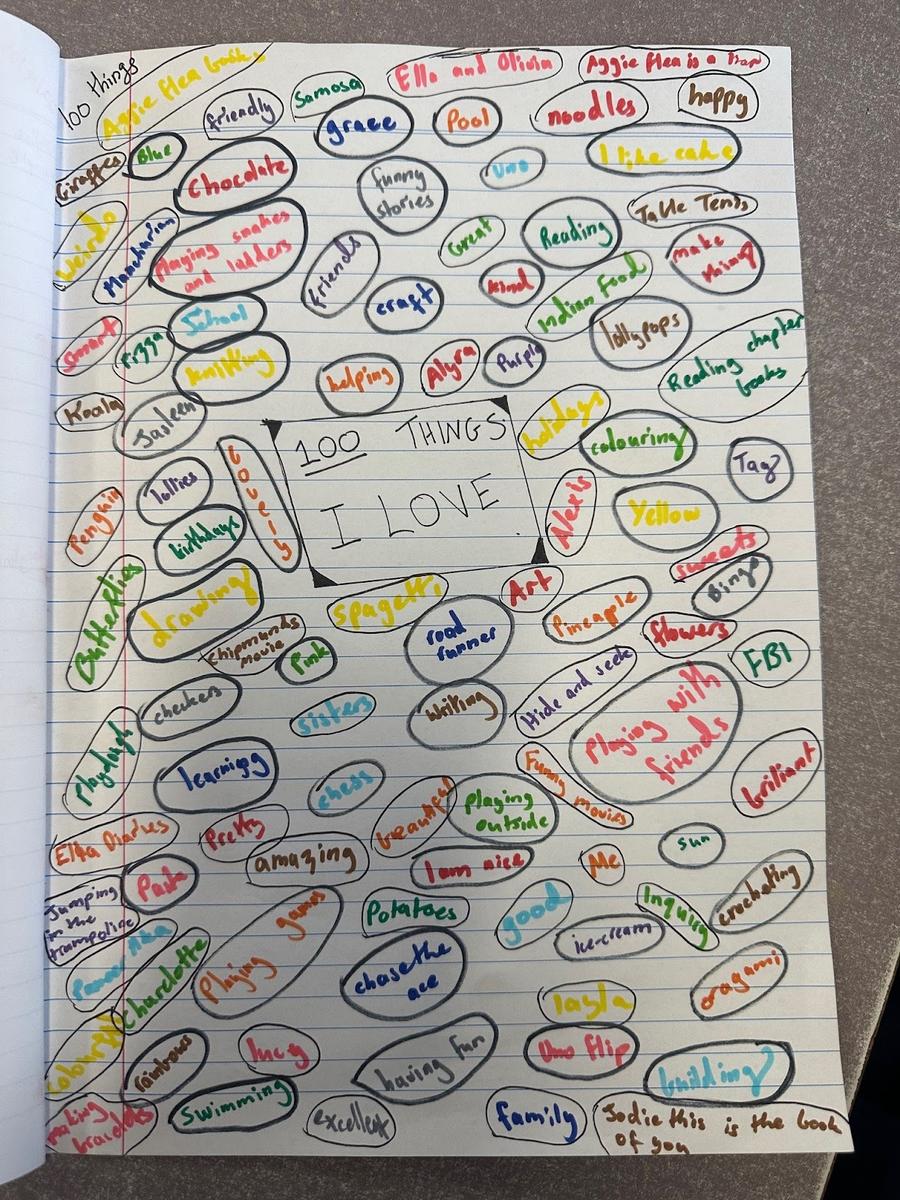 100 things
Aggie flea books
Ella and Olivia
Aggie flea is a
friendly
Samosa
grace
Pool
noodles
happy
Giraffes
Blue
Chocolate
funny
stories
Uno
I like cake
Weirdo
Manchurian
Playing snakes
and ladders
friends
Great
Reading
Table Tenis
craft
kind
Indian Food
make
Smart
Pizza
School
knitting
helping
Alyra
Purple
lollypops
Reading chapter
books
Koala
Jasleen
Lovely
100 THINGS
I LOVE
holidays
colouring
Tag
Penguin
lollies
birthdays
Alexis
Yellow
sweets
Butterflies
drawing
spagetti
Art
Pineapple
Bingo
Chipmunds
movie
Pink
road
runner
flowers
FBI
checkers
sisters
writing
Hide and seek
Playing with
friends
Playdough
learning
chess
beautiful
playing
outside
Funny movies
brilliant
Ella Diaries
Pretty
amazing
I am nice
Me
sun
Jumping
in the
trampoline
Pasta
Potatoes
good
ice-cream
Inquiry
crocheting
Charolotte
Playing games
chase the
ace
layla
oragami
Colourful
rainbows
lucy
having fun
Uno flip
building
making
Swimming
excellent
family
Jodie this is the book
of you